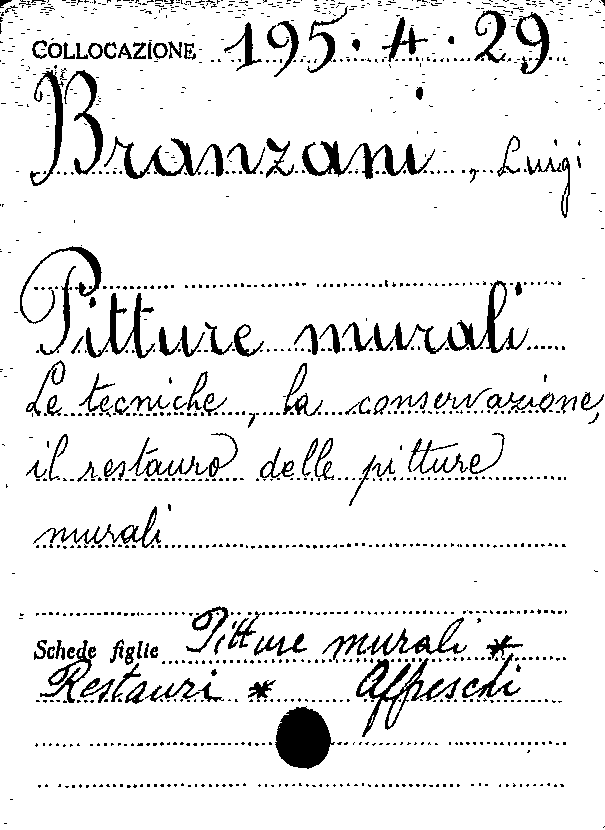 COLLOCAZIONE 195.4.29
Branzani, Luigi
Pitture murali
Le tecniche, la conservazione,
il restauro delle pitture
murali
Schede figlie Pitture murali *
Restauri * Affreschi